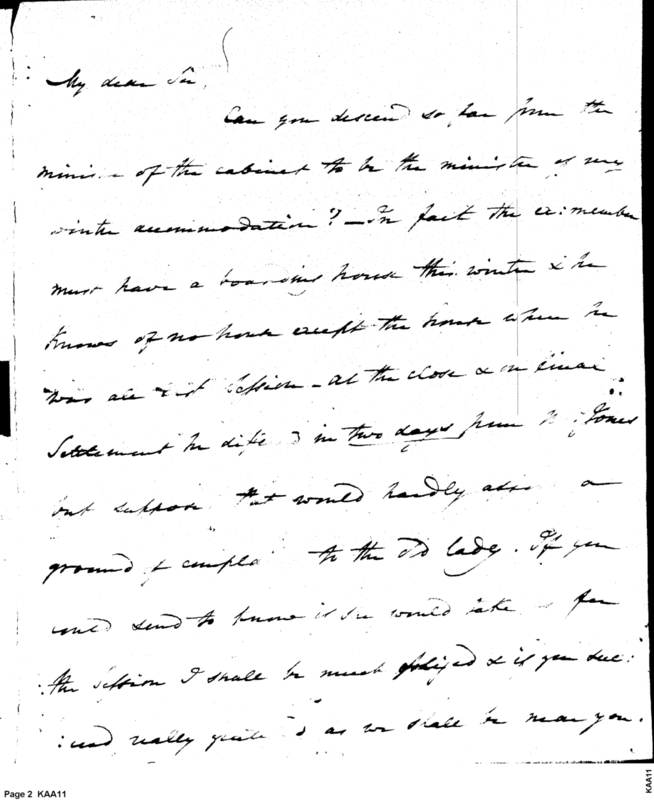 My dear Sir,
Can you descend so far from the
of the cabinet to be the minister of my
winter accommodation? — In fact the ex: member
must have a boarding house this winter & he
knows of no house except the house where he
was all last Session — at the close & on final
Settlement he in two days from Jones
but suppose that would hardly a
ground of to the old lady. If you
could send to know if she would take for
the Session I shall be much obliged & if you
really as we shall be near you.
Page 2 KAA11
KAA11